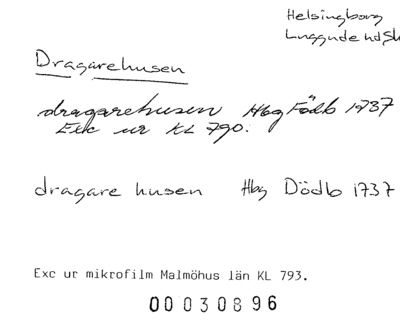 Helsingborg
Luggude hd, Sk
Dragarehusen
dragarehusen Hbg Födb 1737
Exc ur KL 790.
dragare husen Hbg Dödb 1737
Exc ur mikrofilm Malmöhus län KL 793.
00030896